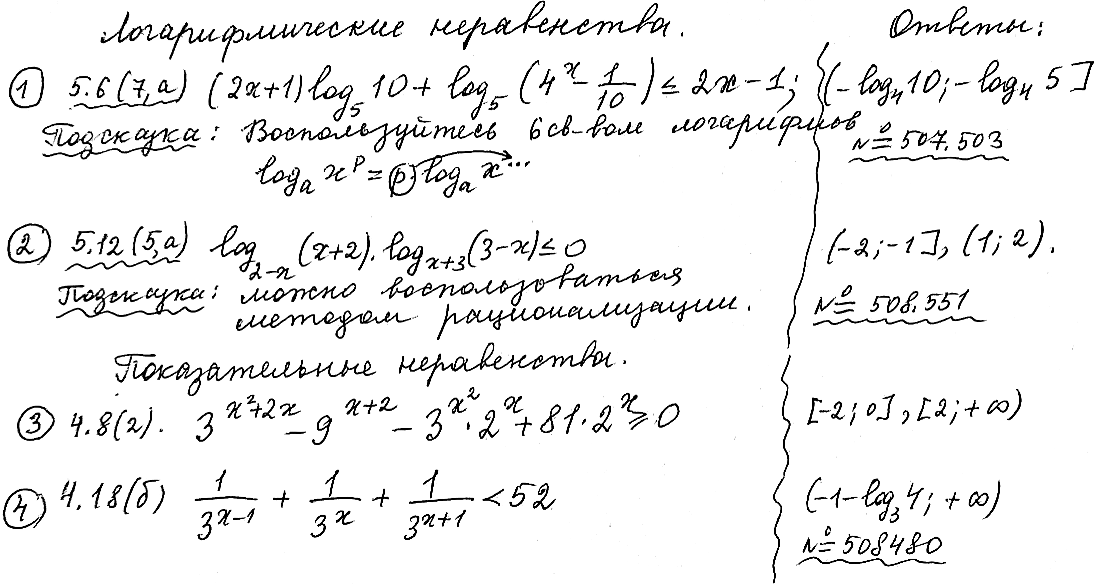 Логарифмические неравенства. Ответы:
① 5.6(7,а) (2x+1)log₅10 + log₅(4ˣ - 1/10) ≤ 2x-1; (-log₄10; -log₄5]
Подсказка: Воспользуйтесь 6 св-вом логарифмов № 507.503
logₐxᵖ = p logₐx...
② 5.12(5,а) log₂₋ₓ(x+2)·logₓ₊₃(3-x) ≤ 0 (-2;-1], (1;2).
Подсказка: можно воспользоваться
методом рационализации. № 508.551
Показательные неравенства.
③ 4.8(г). 3^(x²+2x) - 9^(x+2) - 3^(x²)·2ˣ + 81·2ˣ ≥ 0 [-2;0], [2;+∞)
④ 4.18(б) 1/3^(x-1) + 1/3^x + 1/3^(x+1) < 52 (-1-log₃4; +∞)
№ 508480